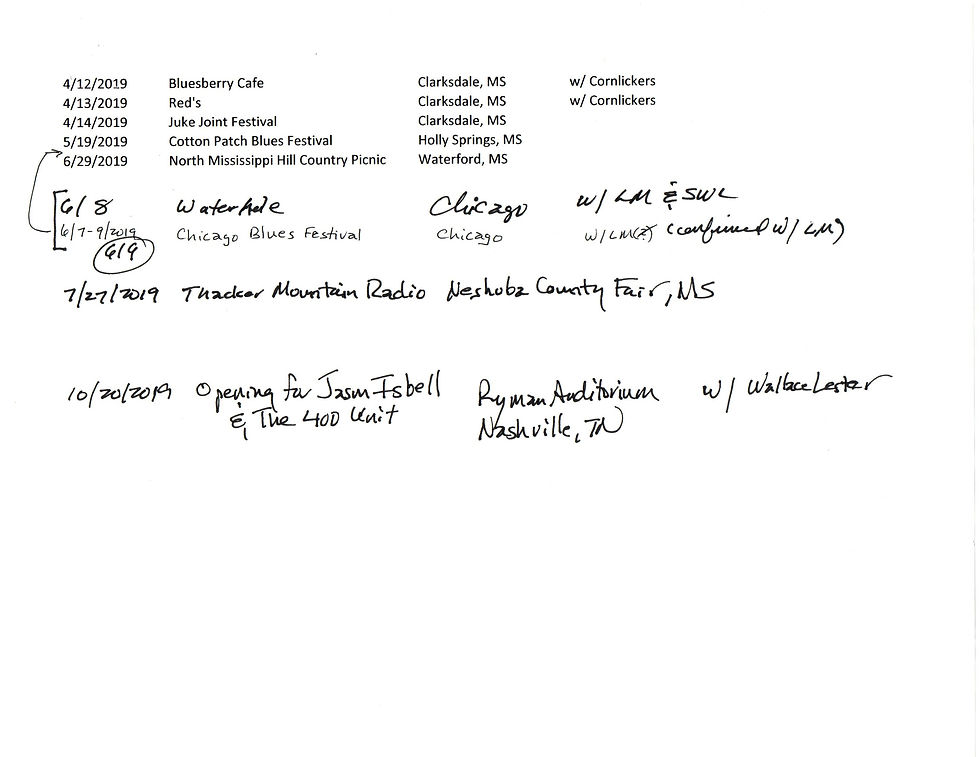 4/12/2019 Bluesberry Cafe Clarksdale, MS w/ Cornlickers
4/13/2019 Red's Clarksdale, MS w/ Cornlickers
4/14/2019 Juke Joint Festival Clarksdale, MS
5/19/2019 Cotton Patch Blues Festival Holly Springs, MS
6/29/2019 North Mississippi Hill Country Picnic Waterford, MS
6/8 WaterHole Chicago w/ LM & SWL
6/7-9/2019 Chicago Blues Festival Chicago w/LM(?) (confirmed w/ LM)
6/9
7/27/2019 Thacker Mountain Radio Neshoba County Fair, MS
10/20/2019 Opening for Jason Isbell Ryman Auditorium w/ Wallace Lester
& The 400 Unit Nashville, TN